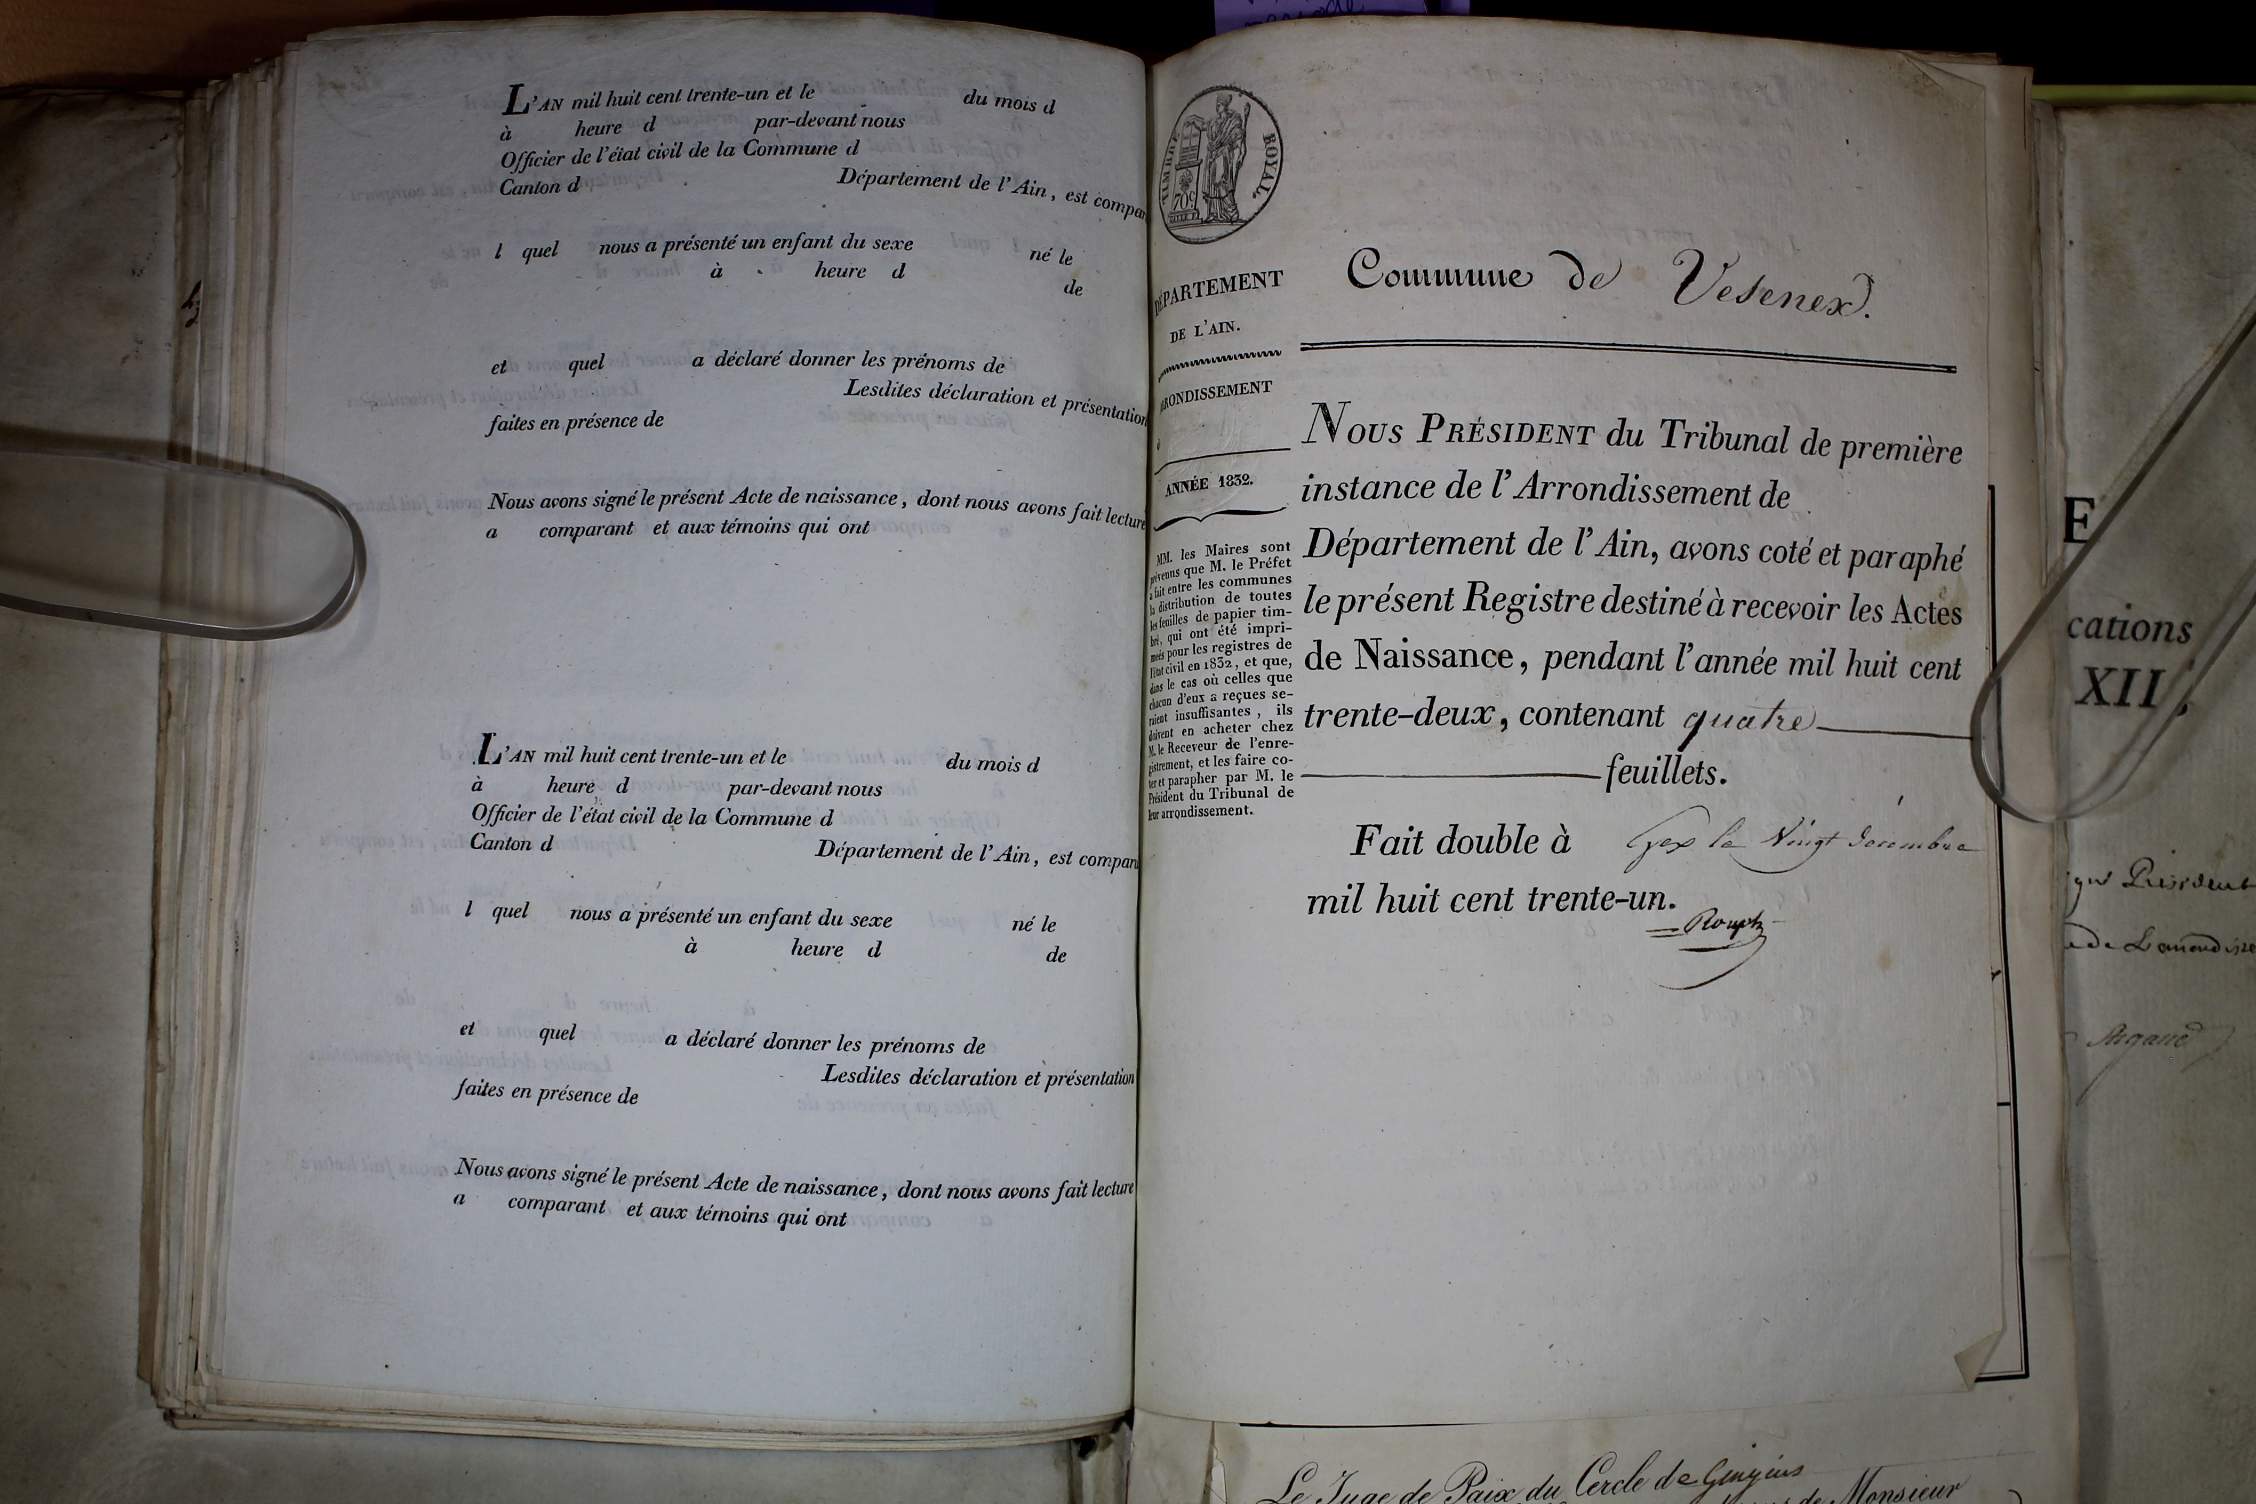 L'AN mil huit cent trente-un et le du mois d
à heure d par-devant nous
Officier de l'état civil de la Commune d
Canton d Département de l'Ain, est compar
l quel nous a présenté un enfant du sexe né le
à heure d de
et quel a déclaré donner les prénoms de
Lesdites déclaration et présentation
faites en présence de
Nous avons signé le présent Acte de naissance, dont nous avons fait lecture
a comparant et aux témoins qui ont
L'AN mil huit cent trente-un et le du mois d
à heure d par-devant nous
Officier de l'état civil de la Commune d
Canton d Département de l'Ain, est compar
l quel nous a présenté un enfant du sexe né le
à heure d de
et quel a déclaré donner les prénoms de
Lesdites déclaration et présentation
faites en présence de
Nous avons signé le présent Acte de naissance, dont nous avons fait lecture
a comparant et aux témoins qui ont
TIMBRE ROYAL
70c
DÉPARTEMENT
DE L'AIN.
ARRONDISSEMENT
d
ANNÉE 1832.
MM. les Maires sont
prévenus que M. le Préfet
a fait entre les communes
la distribution de toutes
les feuilles de papier tim-
bré, qui ont été impri-
meés pour les registres de
l'état civil en 1832, et que,
dans le cas où celles que
chacun d'eux a reçues se-
raient insuffisantes, ils
doivent en acheter chez
M. le Receveur de l'enre-
gistrement, et les faire co-
ter et parapher par M. le
Président du Tribunal de
leur arrondissement.
Commune de Vesenex.
NOUS PRÉSIDENT du Tribunal de première
instance de l'Arrondissement de
Département de l'Ain, avons coté et paraphé
le présent Registre destiné à recevoir les Actes
de Naissance, pendant l'année mil huit cent
trente-deux, contenant quatre
feuillets.
Fait double à Gex le Vingt décembre
mil huit cent trente-un.
Rouph
E
cations
XII;
Président
Argand
Le Juge de Paix du Cercle de Gingins
de Monsieur